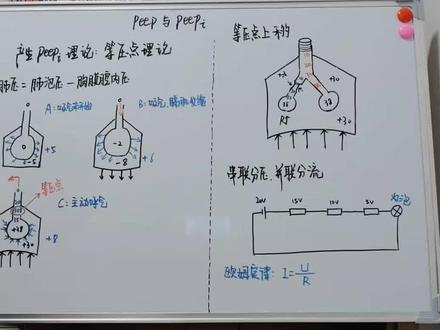 PEEP 与 PEEPi
产生PEEPi理论：等压点理论
肺压 = 肺泡压 - 胸膜腔内压
A：吸气未开始
B：吸气，膈肌收缩
0
-5
+5
-2
-8
+6
等压点
C：主动呼气
+38
+30
+8
等压点上移
+30
35
38
RT
+30
串联分压，并联分流
20V
15V
10V
5V
灯泡
欧姆定律：I=U/R